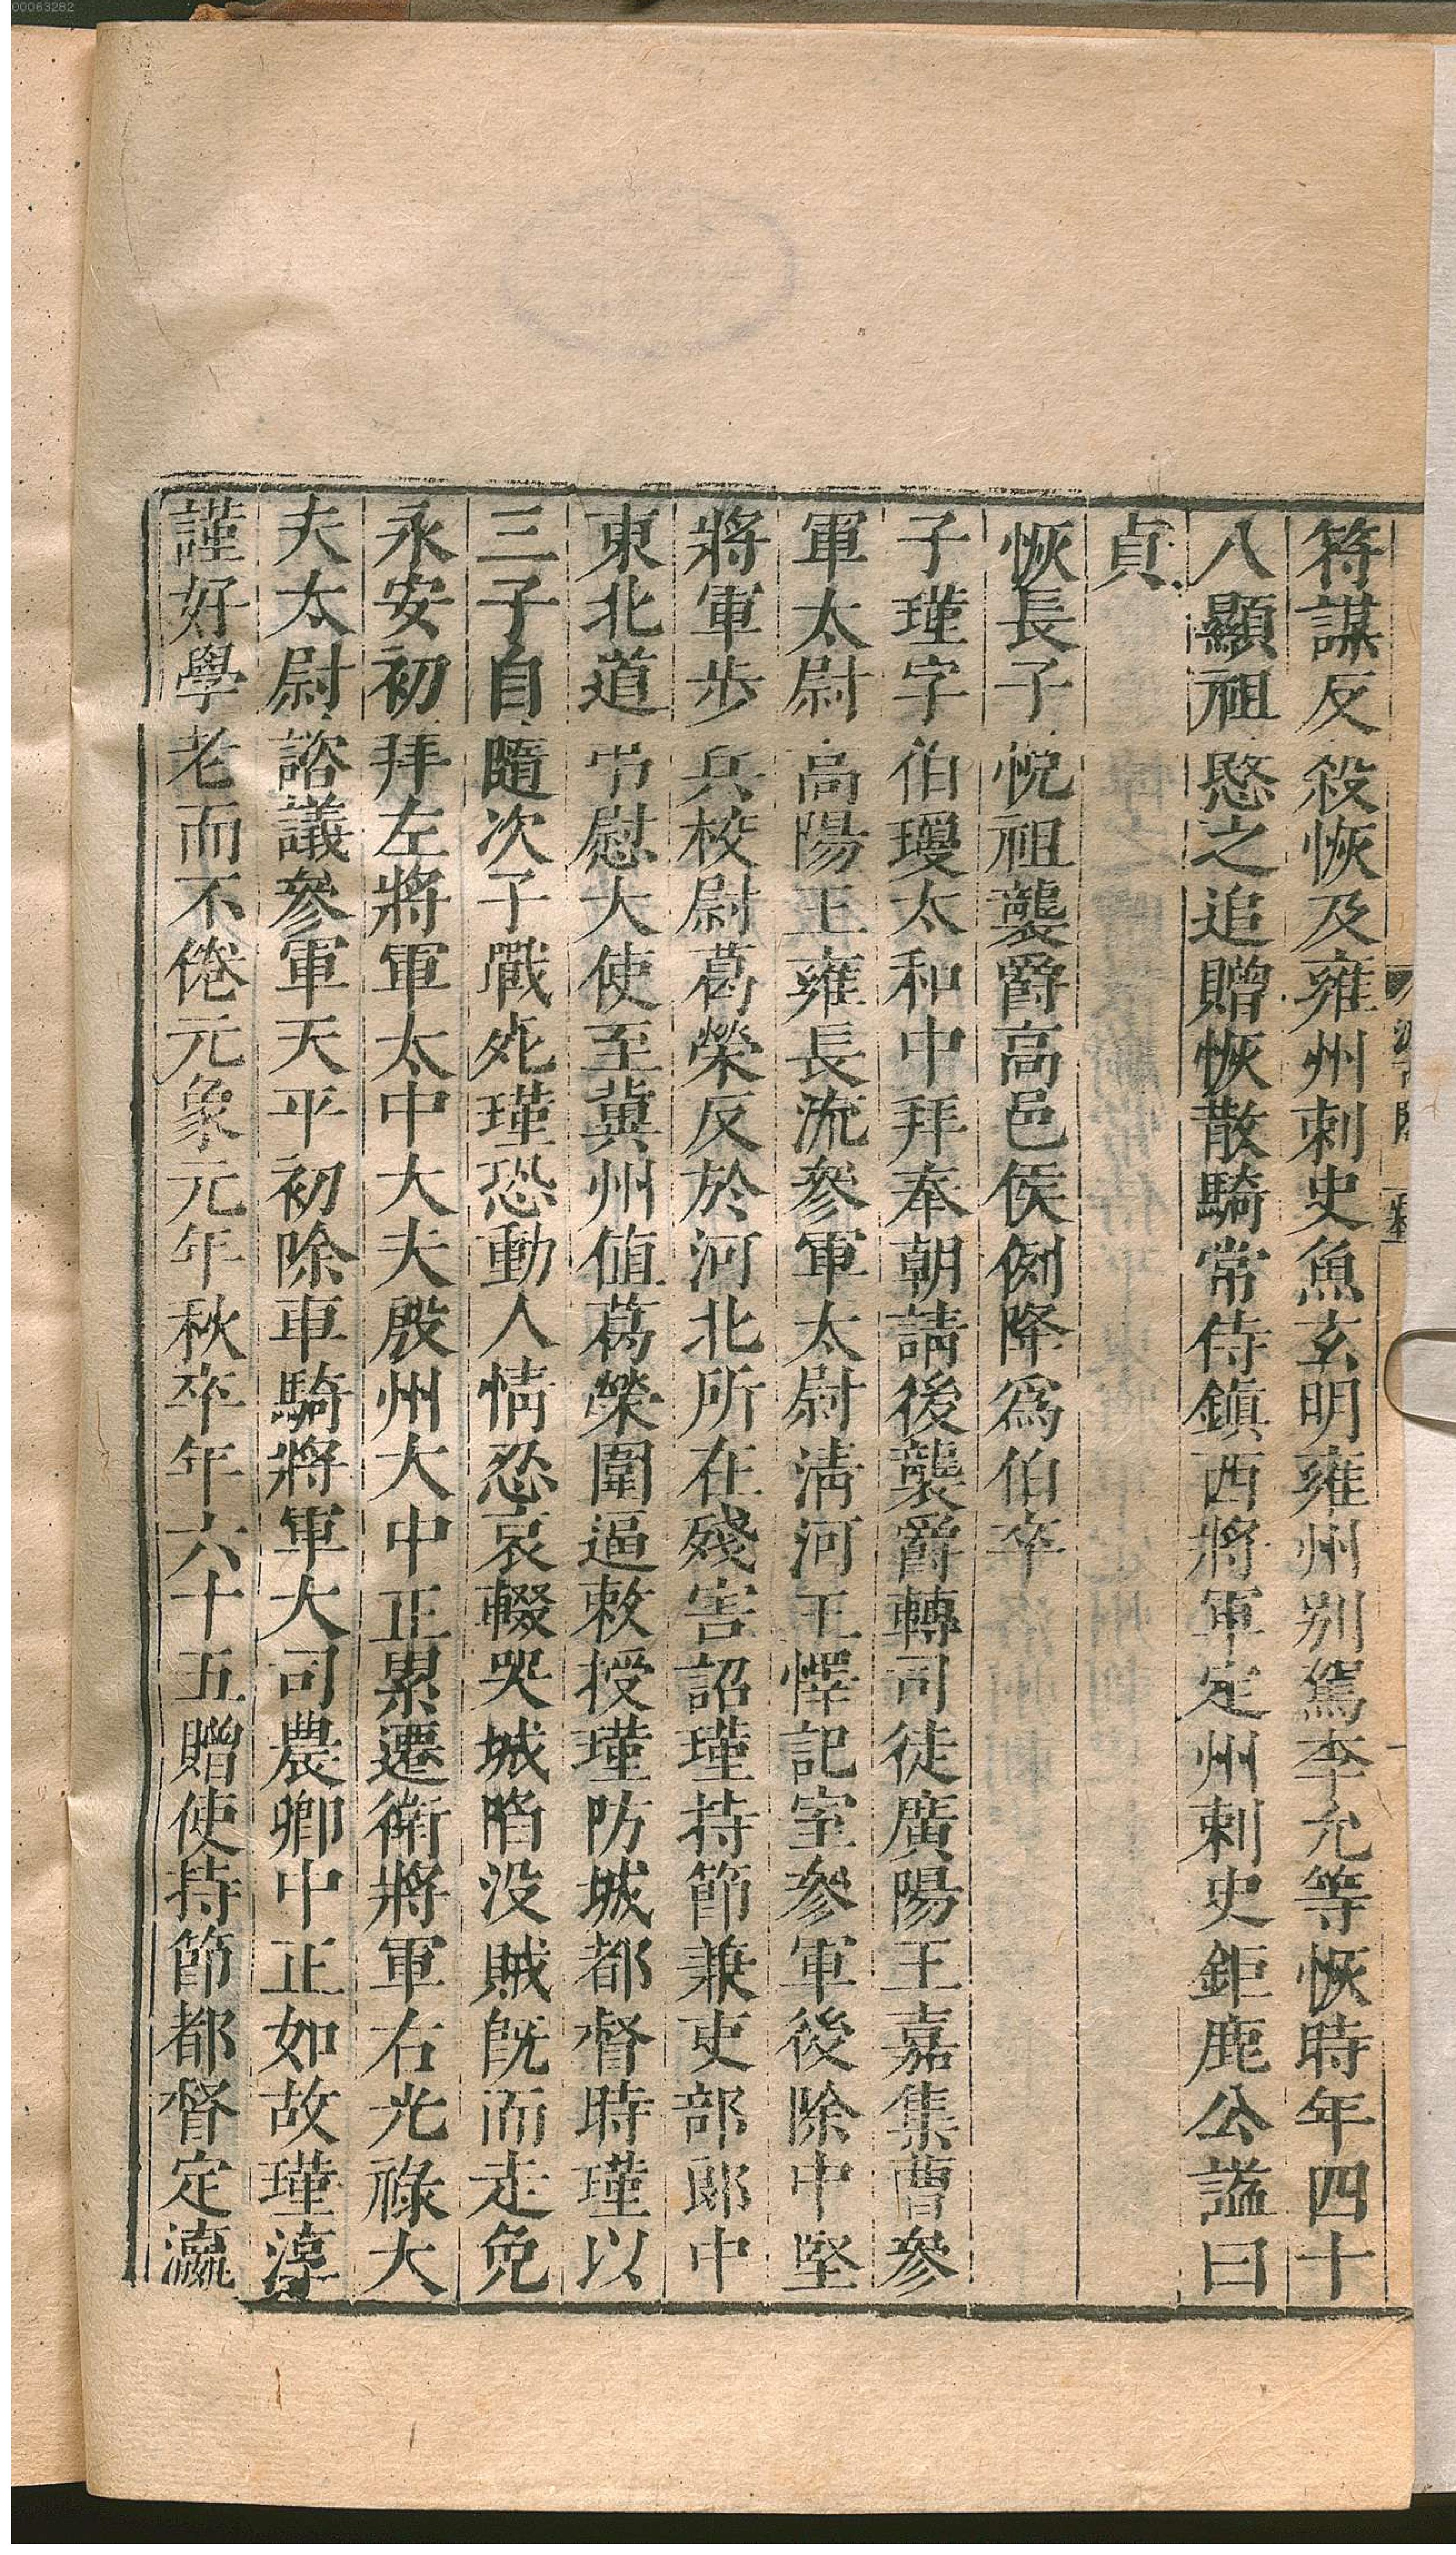 00063282
符謀反殺恢及雍州刺史魚玄明雍州别駕李允等恢時年四十
八顯祖愍之追贈恢散騎常侍鎮西將軍定州刺史鉅鹿公謚曰
貞
恢長子悅祖襲爵高邑侯例降爲伯卒
子瑾字伯瓊太和中拜奉朝請後襲爵轉司徒廣陽王嘉集曹參
軍太尉高陽王雍長流參軍太尉清河王懌記室參軍後除中堅
將軍步兵校尉葛榮反於河北所在殘害詔瑾持節兼吏部郎中
東北道弔慰大使至冀州值葛榮圍逼敕授瑾防城都督時瑾以
三子自隨次子戰死瑾恐動人情忍哀輟哭城陷没賊旣而走免
永安初拜左將軍太中大夫殷州大中正累遷衛將軍右光祿大
夫太尉諮議參軍天平初除車騎將軍大司農卿中正如故瑾淳
謹好學老而不倦元象元年秋卒年六十五贈使持節都督定瀛